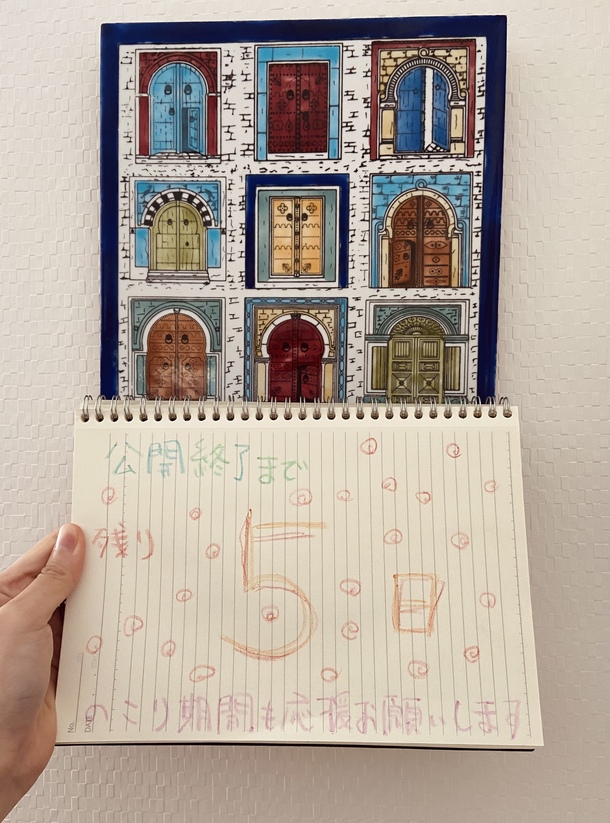 公開終了まで
残り
5日
のこり期間も応援お願いします
No.
DATE